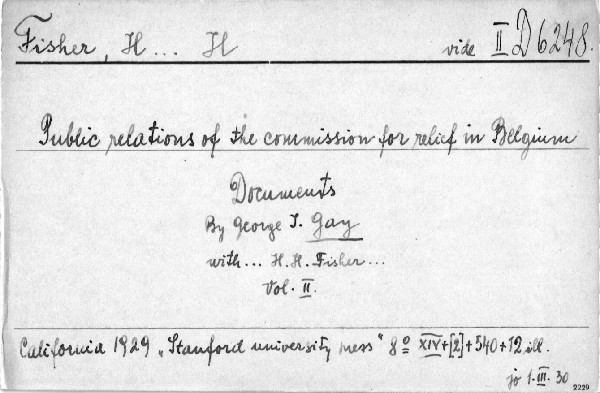 Fisher, H... H vide II D 6248.
Public relations of the commission for relief in Belgium
Documents
By George I. Gay
with... H. H. Fisher...
Vol. II.
California 1929 „Stanford university press" 8º XIV+[2]+540+12 ill.
jö 1.III.30
2229